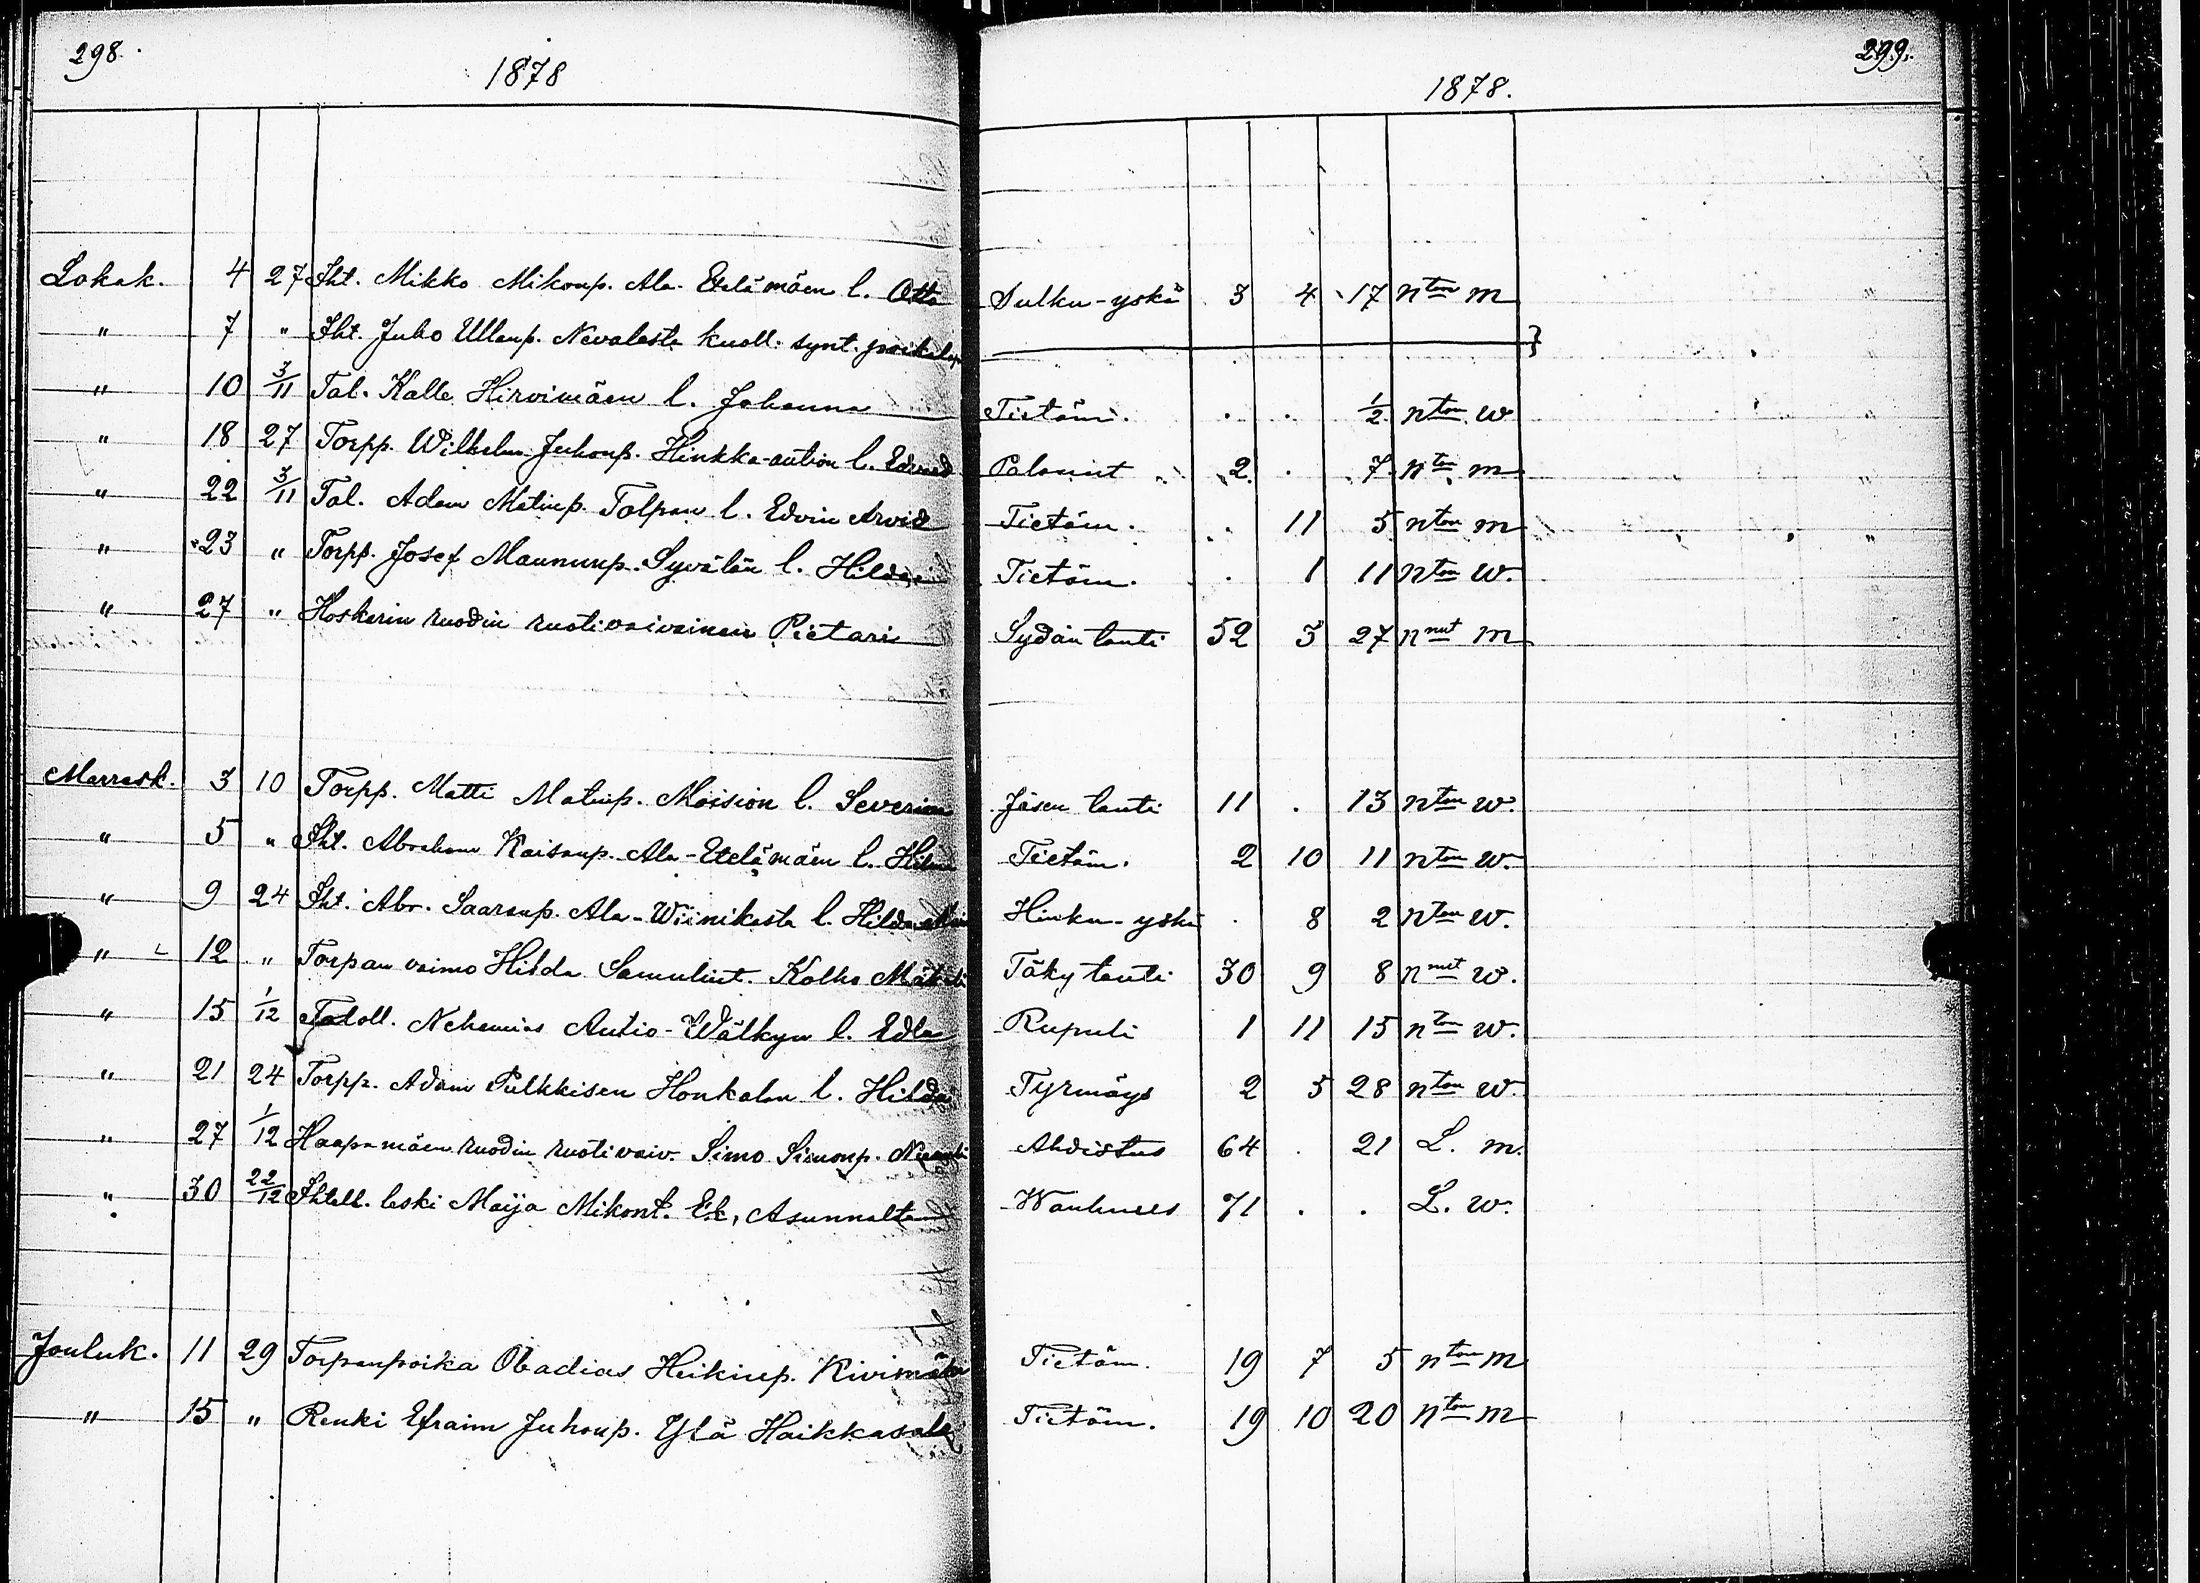 298.
1878
Lokak. 4 27 Iht. Mikko Mikonp. Ala-Etelämäen l. Otto
" 7 " Iht. Juho Ullanp. Nevalasta kuoll. synt. poikalapsi
" 10 3/11 Tal. Kalle Hirvimäen l. Johanna
" 18 27 Torpp. Wilhelm Juhonp. Hinkka-aution l. Edvard
" 22 3/11 Tal. Adam Matinp. Tolpan l. Edvin Arvid
" 23 " Torpp. Josef Maununp. Syvälän l. Hilda
" 27 " Koskerin ruodin ruotivaivainen Pietari
Marrask. 3 10 Torpp. Matti Matinp. Moision l. Severina
" 5 " Iht. Abraham Kaisanp. Ala-Etelämäen l. Hilma
" 9 24 Iht. Abr. Saaranp. Ala-Wiinikasta l. Hilda
" 12 " Torpan vaimo Hilda Samulint. Kolho
" 15 1/12 Taloll. Nehemias Autio-Wälkyn l. Edla
" 21 24 Torpp. Adam Pulkkisen Honkalan l. Hilda
" 27 1/12 Haapamäen ruodin ruotivaiv. Simo Simonp.
" 30 22/12 Ihtell. leski Maija Mikont. Ek, Asunnalta
Jouluk. 11 29 Torpanpoika Obadias Heikinp. Kivimäki
" 15 " Renki Efraim Juhonp. Ylä Haikkasala
299.
1878.
Sulku-yskä 3 4 17 nton m
Tietäm. . . 1/2 nton w
Palanut 2 . 7 nton m
Tietäm. . 11 5 nton m
Tietäm. . 1 11 nton w.
Sydän tauti 52 3 27 nnut m
Jäsen tauti 11 . 13 nton w.
Tietäm. 2 10 11 nton w.
Hinku-yskä . 8 2 nton w.
Täky tauti 30 9 8 nnut w.
Rupuli 1 11 15 nton w.
Tyrmäys 2 5 28 nton w.
Ahdistus 64 . 21 L. m.
Wanhuus 71 . . L. w.
Tietäm. 19 7 5 nton m
Tietäm. 19 10 20 nton m